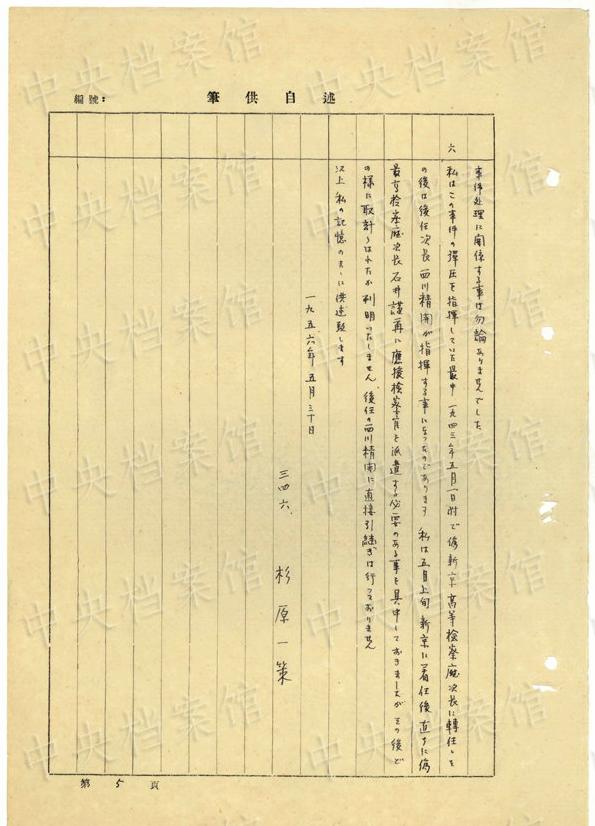 編號：
筆供自述
事件処理に関係する事は勿論ありませんでした
六
私はこの事件の弾圧を指揮していた最中一九四三年五月一日附で偽新京高等検察庁次長に轉任し
の後は後任次長西川精開が指揮する事になったのであります 私は五月上旬新京に着任後直ちに偽
最高検察庁次長石井謹再に應援検察官を派遣する必要のある事を具申しておきましたがその後ど
の様に取計らはれたか判明いたしません。後任の西川精開に直接引継ぎは行っておりません
以上私の記憶のまゝに供述致します
一九五六年五月三十日
三四六、 杉原一策
第 5 頁
中央档案馆